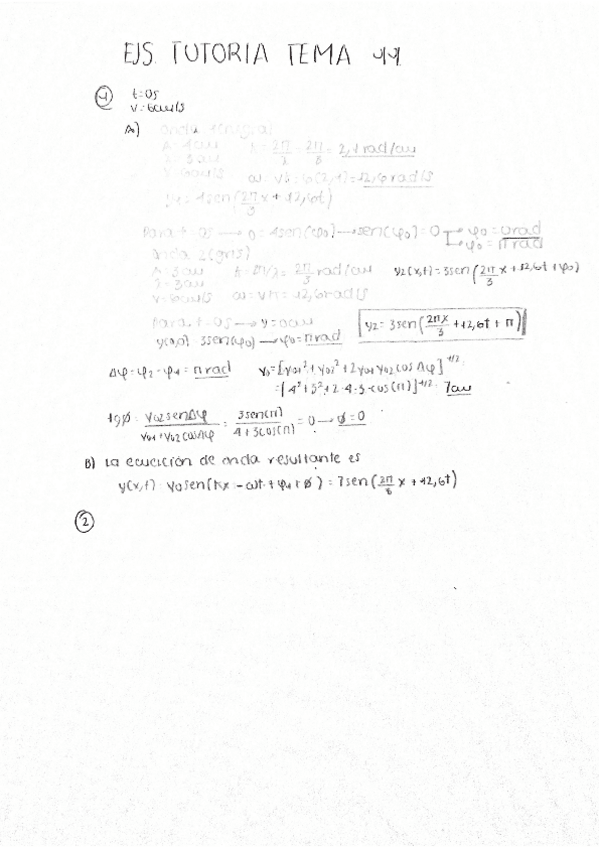 EJS. TUTORIA TEMA 11.
① t=0s
v=6cm/s
A) onda 1(negra)
A=4cm k=2π/λ=2π/3=2,1rad/cm
λ=3cm
v=6cm/s ω=vk=6(2,1)=12,6rad/s
y1=4sen(2π/3 x+12,6t)
Para t=0s → 0=4sen(φ0) → sen(φ0)=0 → φ0=0rad
→ φ0=πrad
Onda 2(gris)
A=3cm k=2π/λ=2π/3 rad/cm y2(x,t)=3sen(2π/3 x+12,6t+φ0)
λ=3cm
v=6cm/s ω=vk=12,6rad/s
Para t=0s → y=0cm
y(0,0)=3sen(φ0) → φ0=πrad y2=3sen(2πx/3+12,6t+π)
Δφ=φ2-φ1=πrad y0=[y01²+y02²+2y01y02cosΔφ]^1/2=
=[4²+3²+2·4·3·cos(π)]^1/2=7cm
tgØ=y02senΔφ/y01+y02cosΔφ=3sen(π)/4+3cos(π)=0 → Ø=0
B) La ecuación de onda resultante es
y(x,t)=y0sen(kx-ωt+φ1+Ø)=7sen(2π/6 x+12,6t)
②